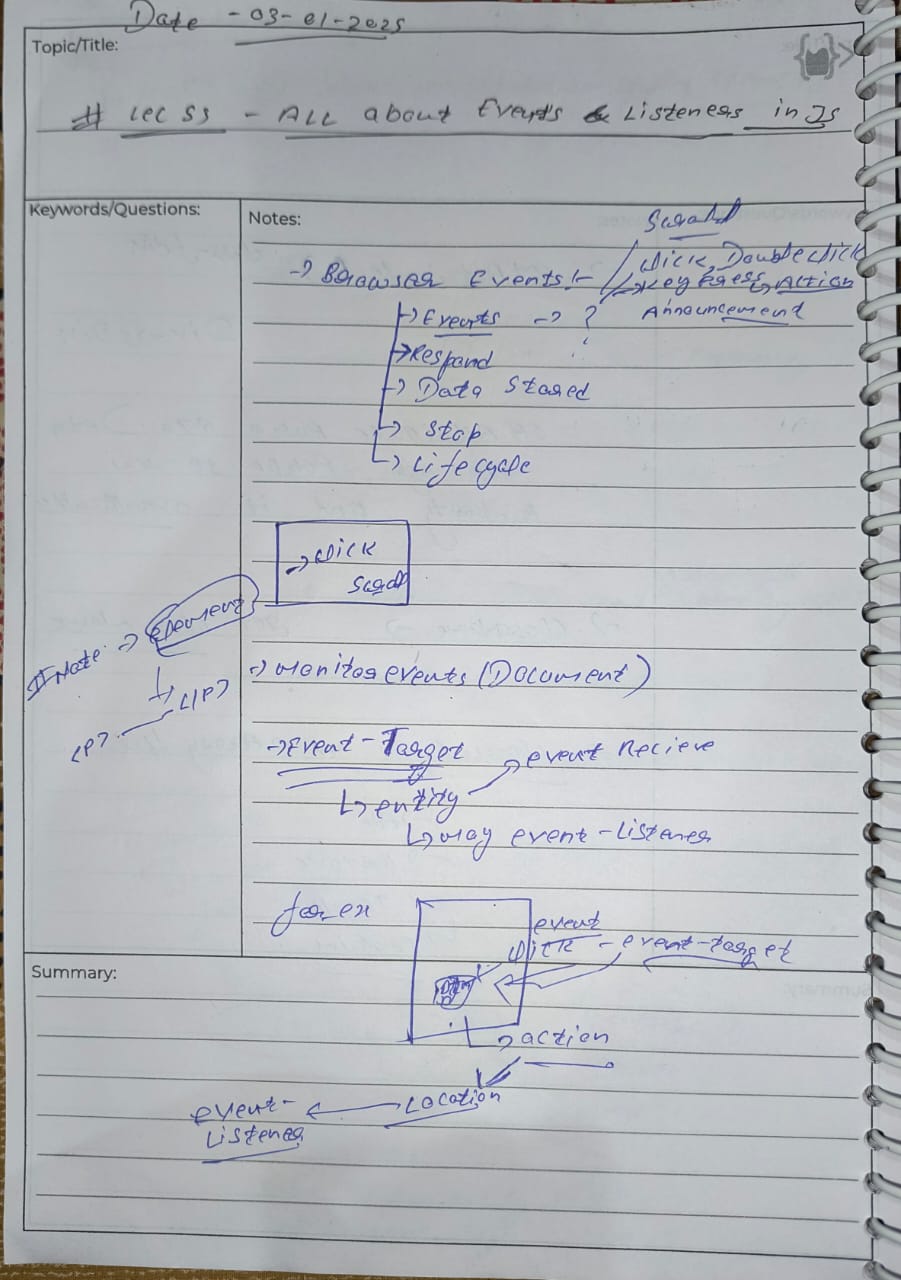 Date - 03-01-2025
Topic/Title:
# Lec 53 - ALL about Events & Listeners in JS
Keywords/Questions:
Notes:
Scroll
Click, Doubleclick
-> Browser Events :- -> Key Press, Action
Announcement
-> Events -> ?
-> Respond
-> Data Stored
-> Stop
-> Lifecycle
-> Click
Scroll
# Note: -> Element
<p> </p>
-> monitorevents (Document)
-> Event-Target
-> entity -> event Recieve
-> may event-Listener
for ex
event
Click - event-target
-> action
Location
event-
Listener
Summary: